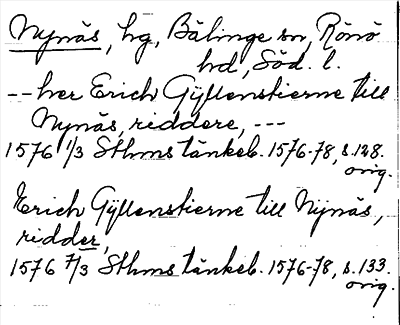 Nynäs, hg, Bälinge sn, Rönö
hd, Söd. l.
-- her Erich Gyllenstierne till
Nynäs, riddere, ---
1576 1/3 Sthms tänkeb. 1576-78, s. 128.
orig.
Erich Gÿllenstierne till Nÿnäs,
ridder,
1576 7/3 Sthms tänkeb. 1576-78, s. 133.
orig.